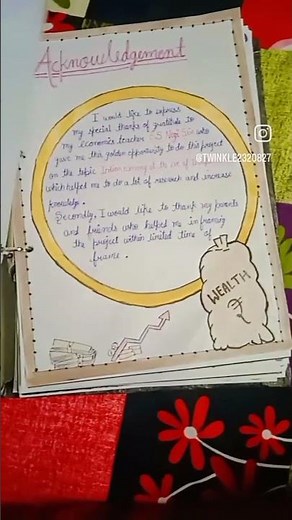 Acknowledgement
I would like to express
my special thanks of gratitude to
my economics teacher Sir who
gave me this golden opportunity to do this project
on the topic Indian economy at the eve of
which helped me to do a lot of research and increase
knowledge.
Secondly, I would like to thank my parents
and friends who helped me in framing
the project within limited time of
frame.
@TWINKLE2320827
WEALTH
₹